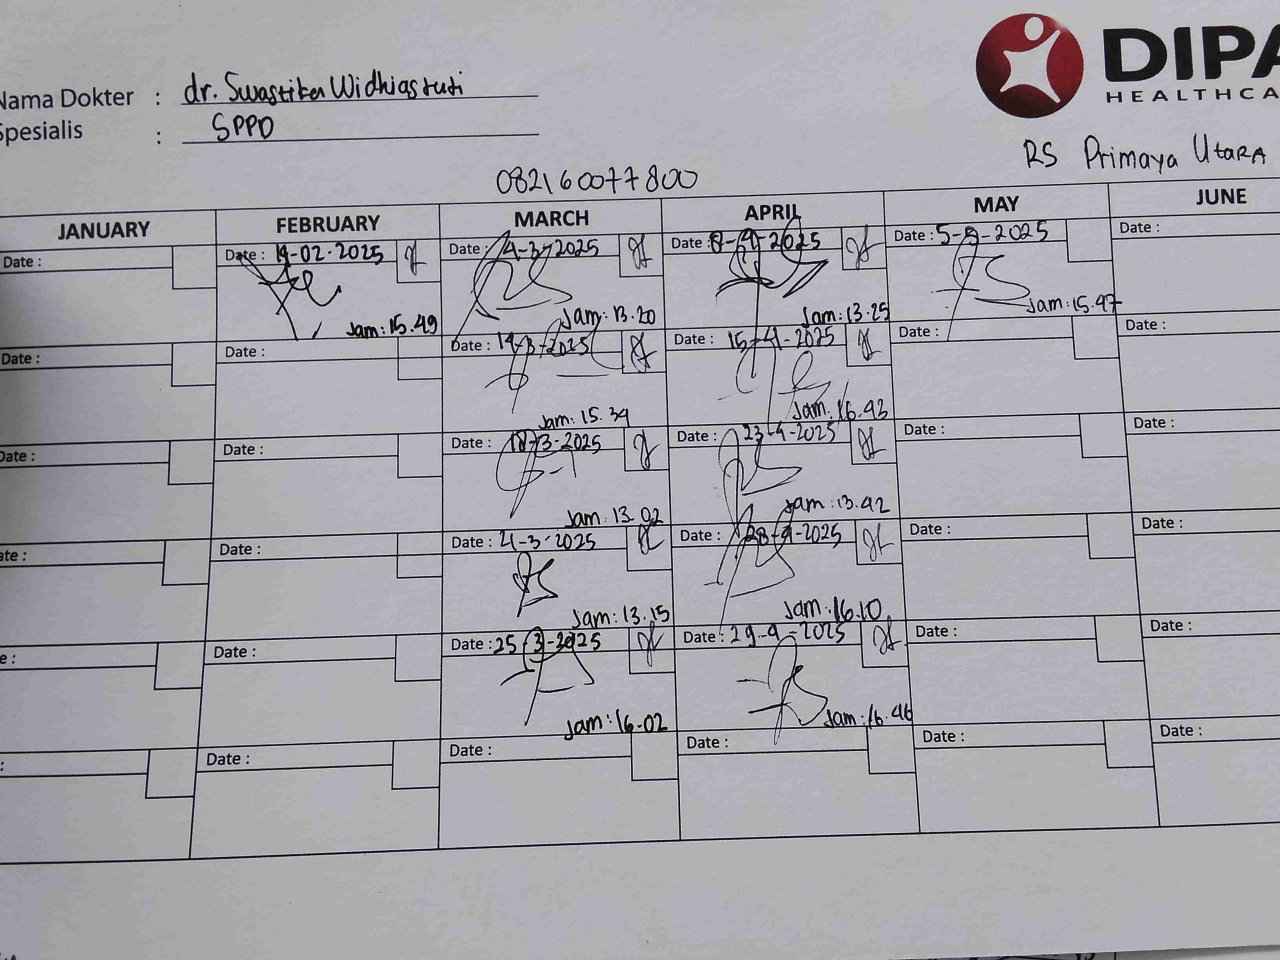 DIPA
HEALTHCA
Nama Dokter : dr. Swastika Widhiastuti
Spesialis : SPPD
RS Primaya Utara
082160077800
JANUARY FEBRUARY MARCH APRIL MAY JUNE
Date : Date : 14-02-2025 Date : 4-3-2025 Date : 8-4-2025 Date : 5-5-2025 Date :
Jam: 15.49 Jam: 13.20 Jam: 13.25 Jam: 15.47
Date : Date : Date : 14-3-2025 Date : 15-4-2025 Date : Date :
Jam: 15.34 Jam: 16.43
Date : Date : Date : 18-3-2025 Date : 23-4-2025 Date : Date :
Jam: 13.02 Jam: 13.42
ate : Date : Date : 21-3-2025 Date : 28-4-2025 Date : Date :
Jam: 13.15 Jam: 16.10
e : Date : Date : 25-3-2025 Date : 29-4-2025 Date : Date :
Jam: 16.02 Jam: 16.46
: Date : Date : Date : Date : Date :